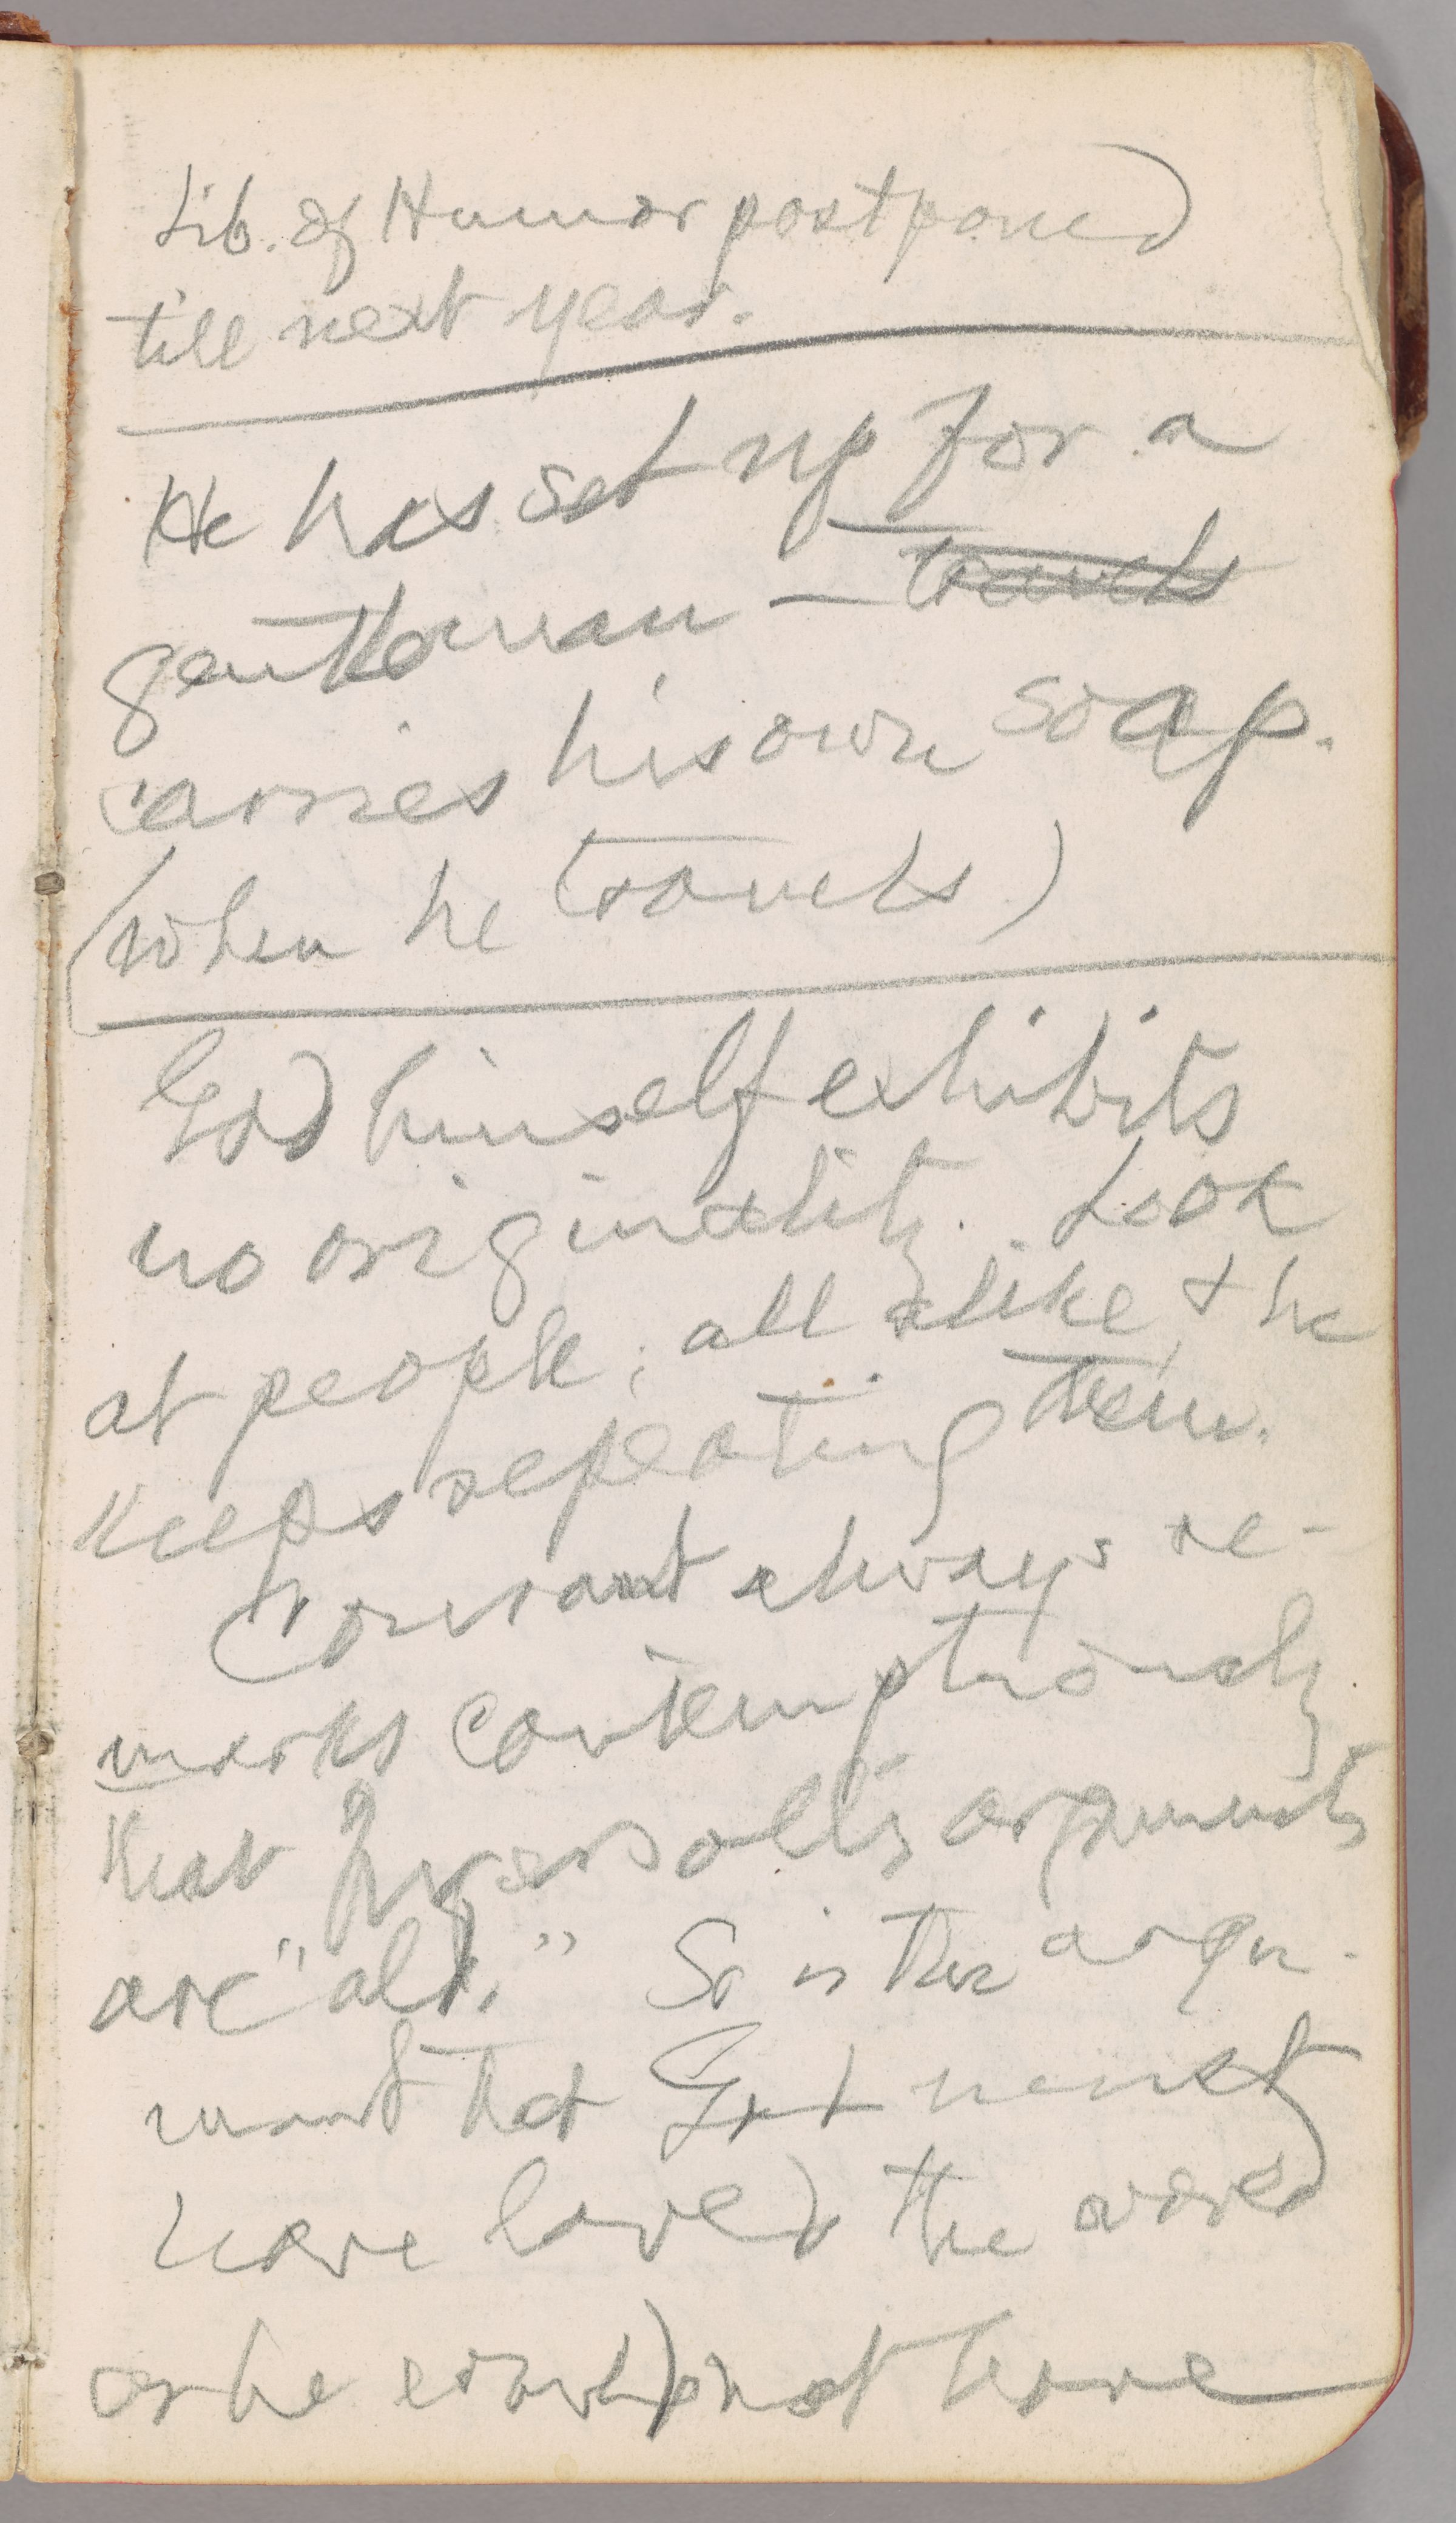 Lib. of Humor postponed
till next year.
He has set up for a
gentleman — travels
carries his own soap.
(when he travels)
God himself exhibits
no originality. Look
at people; all alike, & he
keeps repeating them.
Courant always re-
marks contemptuously
that Ingersoll's arguments
are "old." So is the argu-
ment that God must
have loved the world
or he would not have